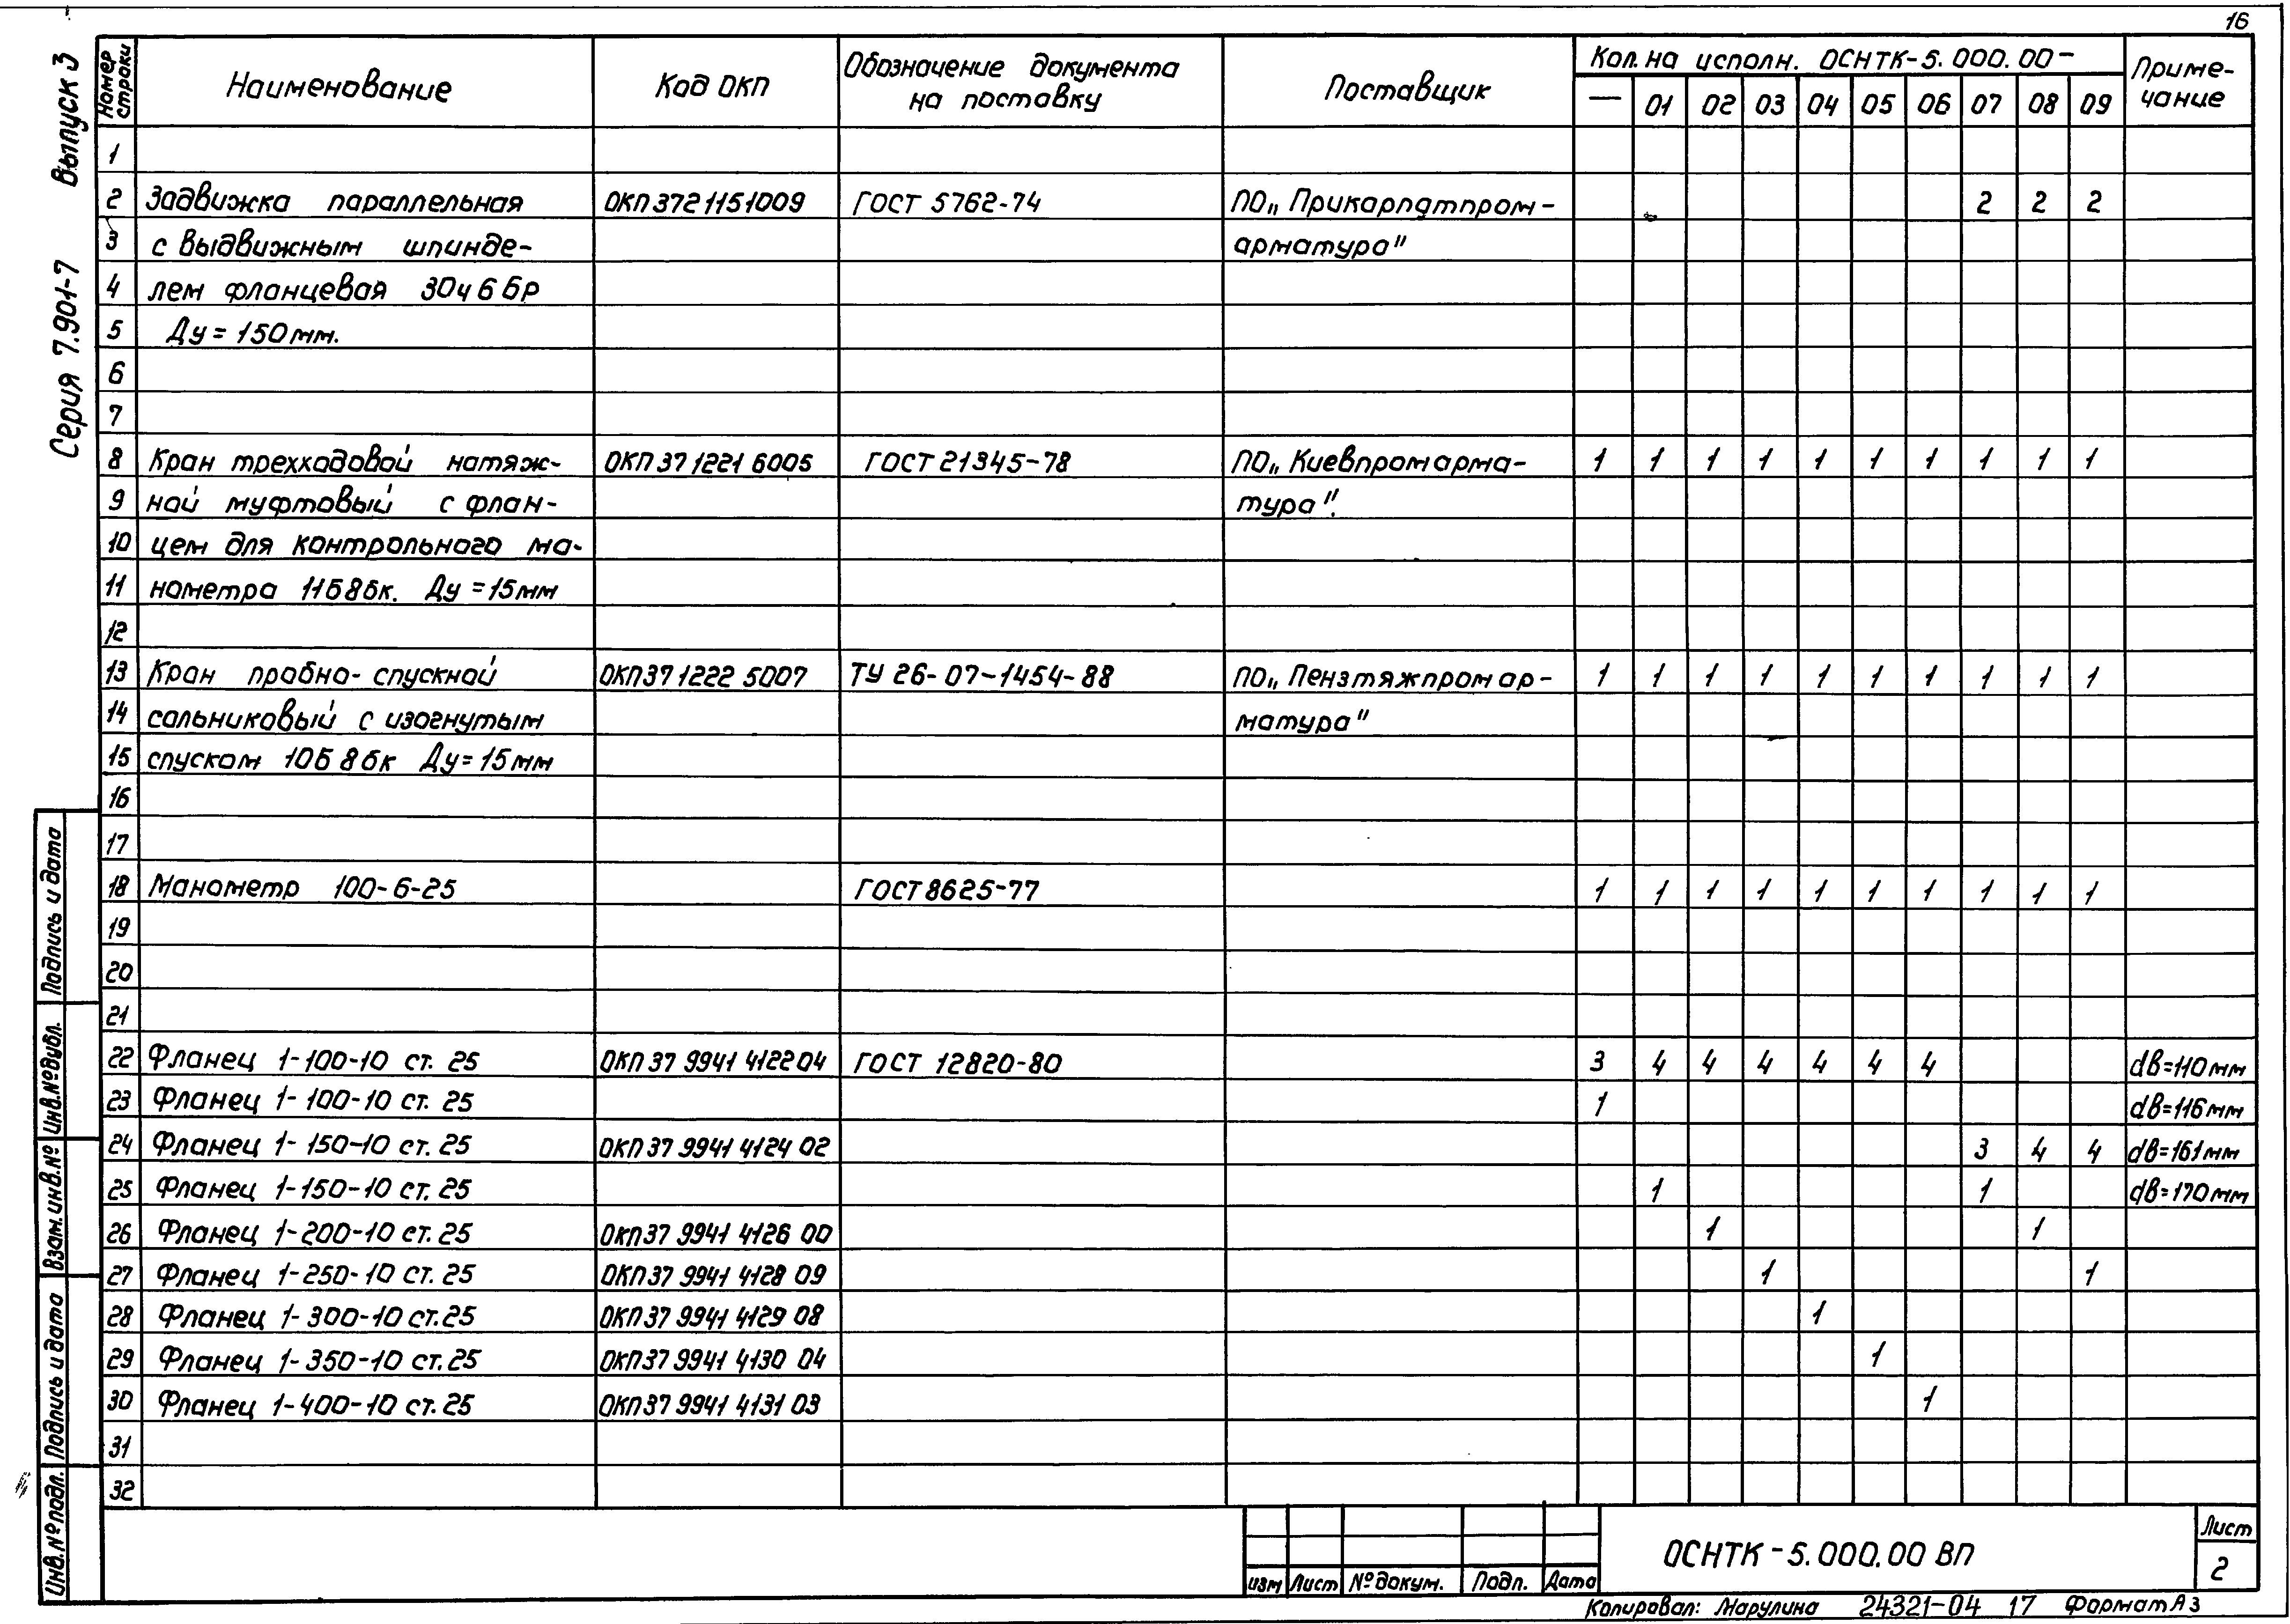 16
Выпуск 3
Серия 7.901-7
Номер строки | Наименование | Код ОКП | Обозначение документа на поставку | Поставщик | Кол. на исполн. ОСНТК-5.000.00- | Приме-чание
— 01 02 03 04 05 06 07 08 09
1
2 Задвижка параллельная ОКП 3721151009 ГОСТ 5762-74 ПО„ Прикарпатпром- 2 2 2
3 с выдвижным шпинде- арматура"
4 лем фланцевая 30ч 6 бр
5 Ду = 150 мм.
6
7
8 Кран трехходовой натяж- ОКП 37 1221 6005 ГОСТ 21345-78 ПО„ Киевпромарма- 1 1 1 1 1 1 1 1 1 1
9 ной муфтовый с флан- тура".
10 цем для контрольного ма-
11 нометра 11Б8бк. Ду = 15мм
12
13 Кран пробно-спускной ОКП 37 1222 5007 ТУ 26-07-1454-88 ПО„ Пензтяжпромар- 1 1 1 1 1 1 1 1 1 1
14 сальниковый с изогнутым матура"
15 спуском 10Б 8бк Ду=15мм
16
17
18 Манометр 100-6-25 ГОСТ 8625-77 1 1 1 1 1 1 1 1 1 1
19
20
21
22 Фланец 1-100-10 ст. 25 ОКП 37 9941 412204 ГОСТ 12820-80 3 4 4 4 4 4 4 dв=110мм
23 Фланец 1-100-10 ст. 25 1 dв=116мм
24 Фланец 1-150-10 ст. 25 ОКП 37 9941 4124 02 3 4 4 dв=161мм
25 Фланец 1-150-10 ст. 25 1 1 dв=170мм
26 Фланец 1-200-10 ст. 25 ОКП 37 9941 4126 00 1 1
27 Фланец 1-250-10 ст. 25 ОКП 37 9941 4128 09 1 1
28 Фланец 1-300-10 ст. 25 ОКП 37 9941 4129 08 1
29 Фланец 1-350-10 ст. 25 ОКП 37 9941 4130 04 1
30 Фланец 1-400-10 ст. 25 ОКП 37 9941 4131 03 1
31
32
Подпись и дата
Инв.№дубл.
Взам.инв.№
Подпись и дата
Инв.№подл.
изм Лист №докум. Подп. Дата
ОСНТК-5.000.00 ВП
Лист
2
Копировал: Марулина 24321-04 17 Формат А3